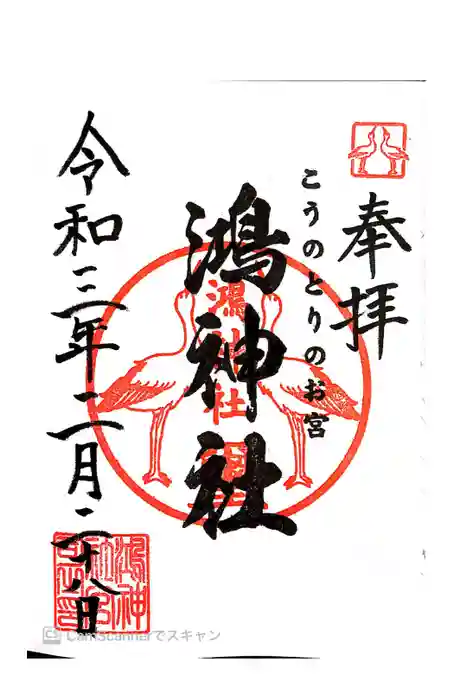 奉拝
こうのとりのお宮
鴻神社
鴻神社
令和三年二月二十八日
鴻神
社
CamScannerでスキャン